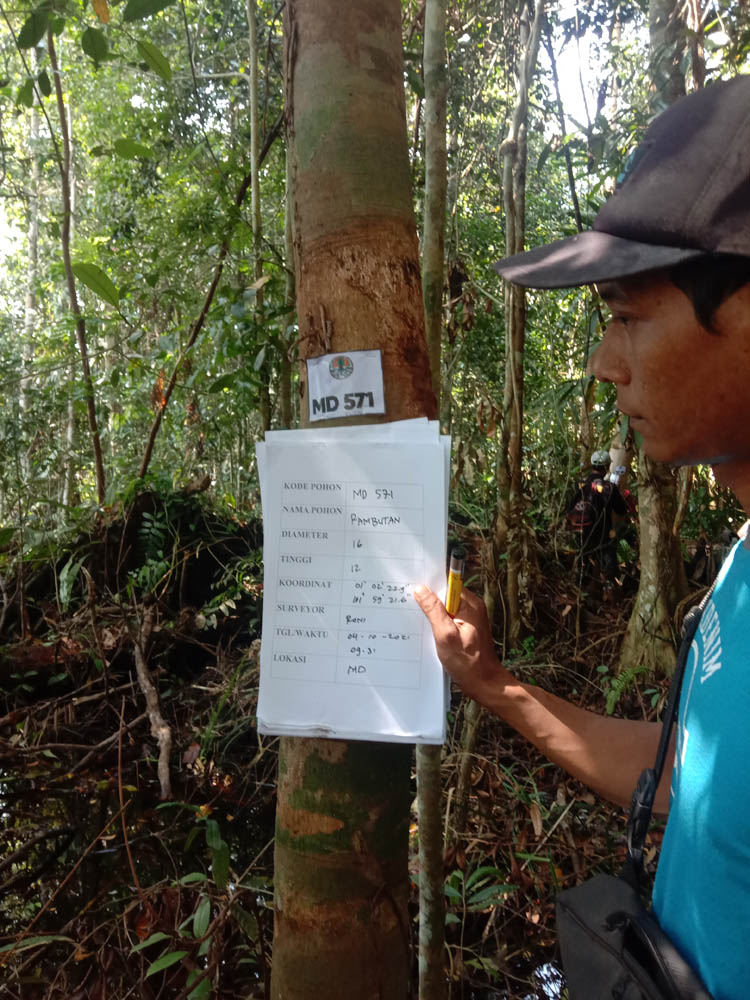 MD 571
KODE POHON MD 571
NAMA POHON RAMBUTAN
DIAMETER 16
TINGGI 12
KOORDINAT 01° 02' 22.9"
101° 59' 21.6"
SURVEYOR RONI
TGL/WAKTU 04-10-2021
09.31
LOKASI MD